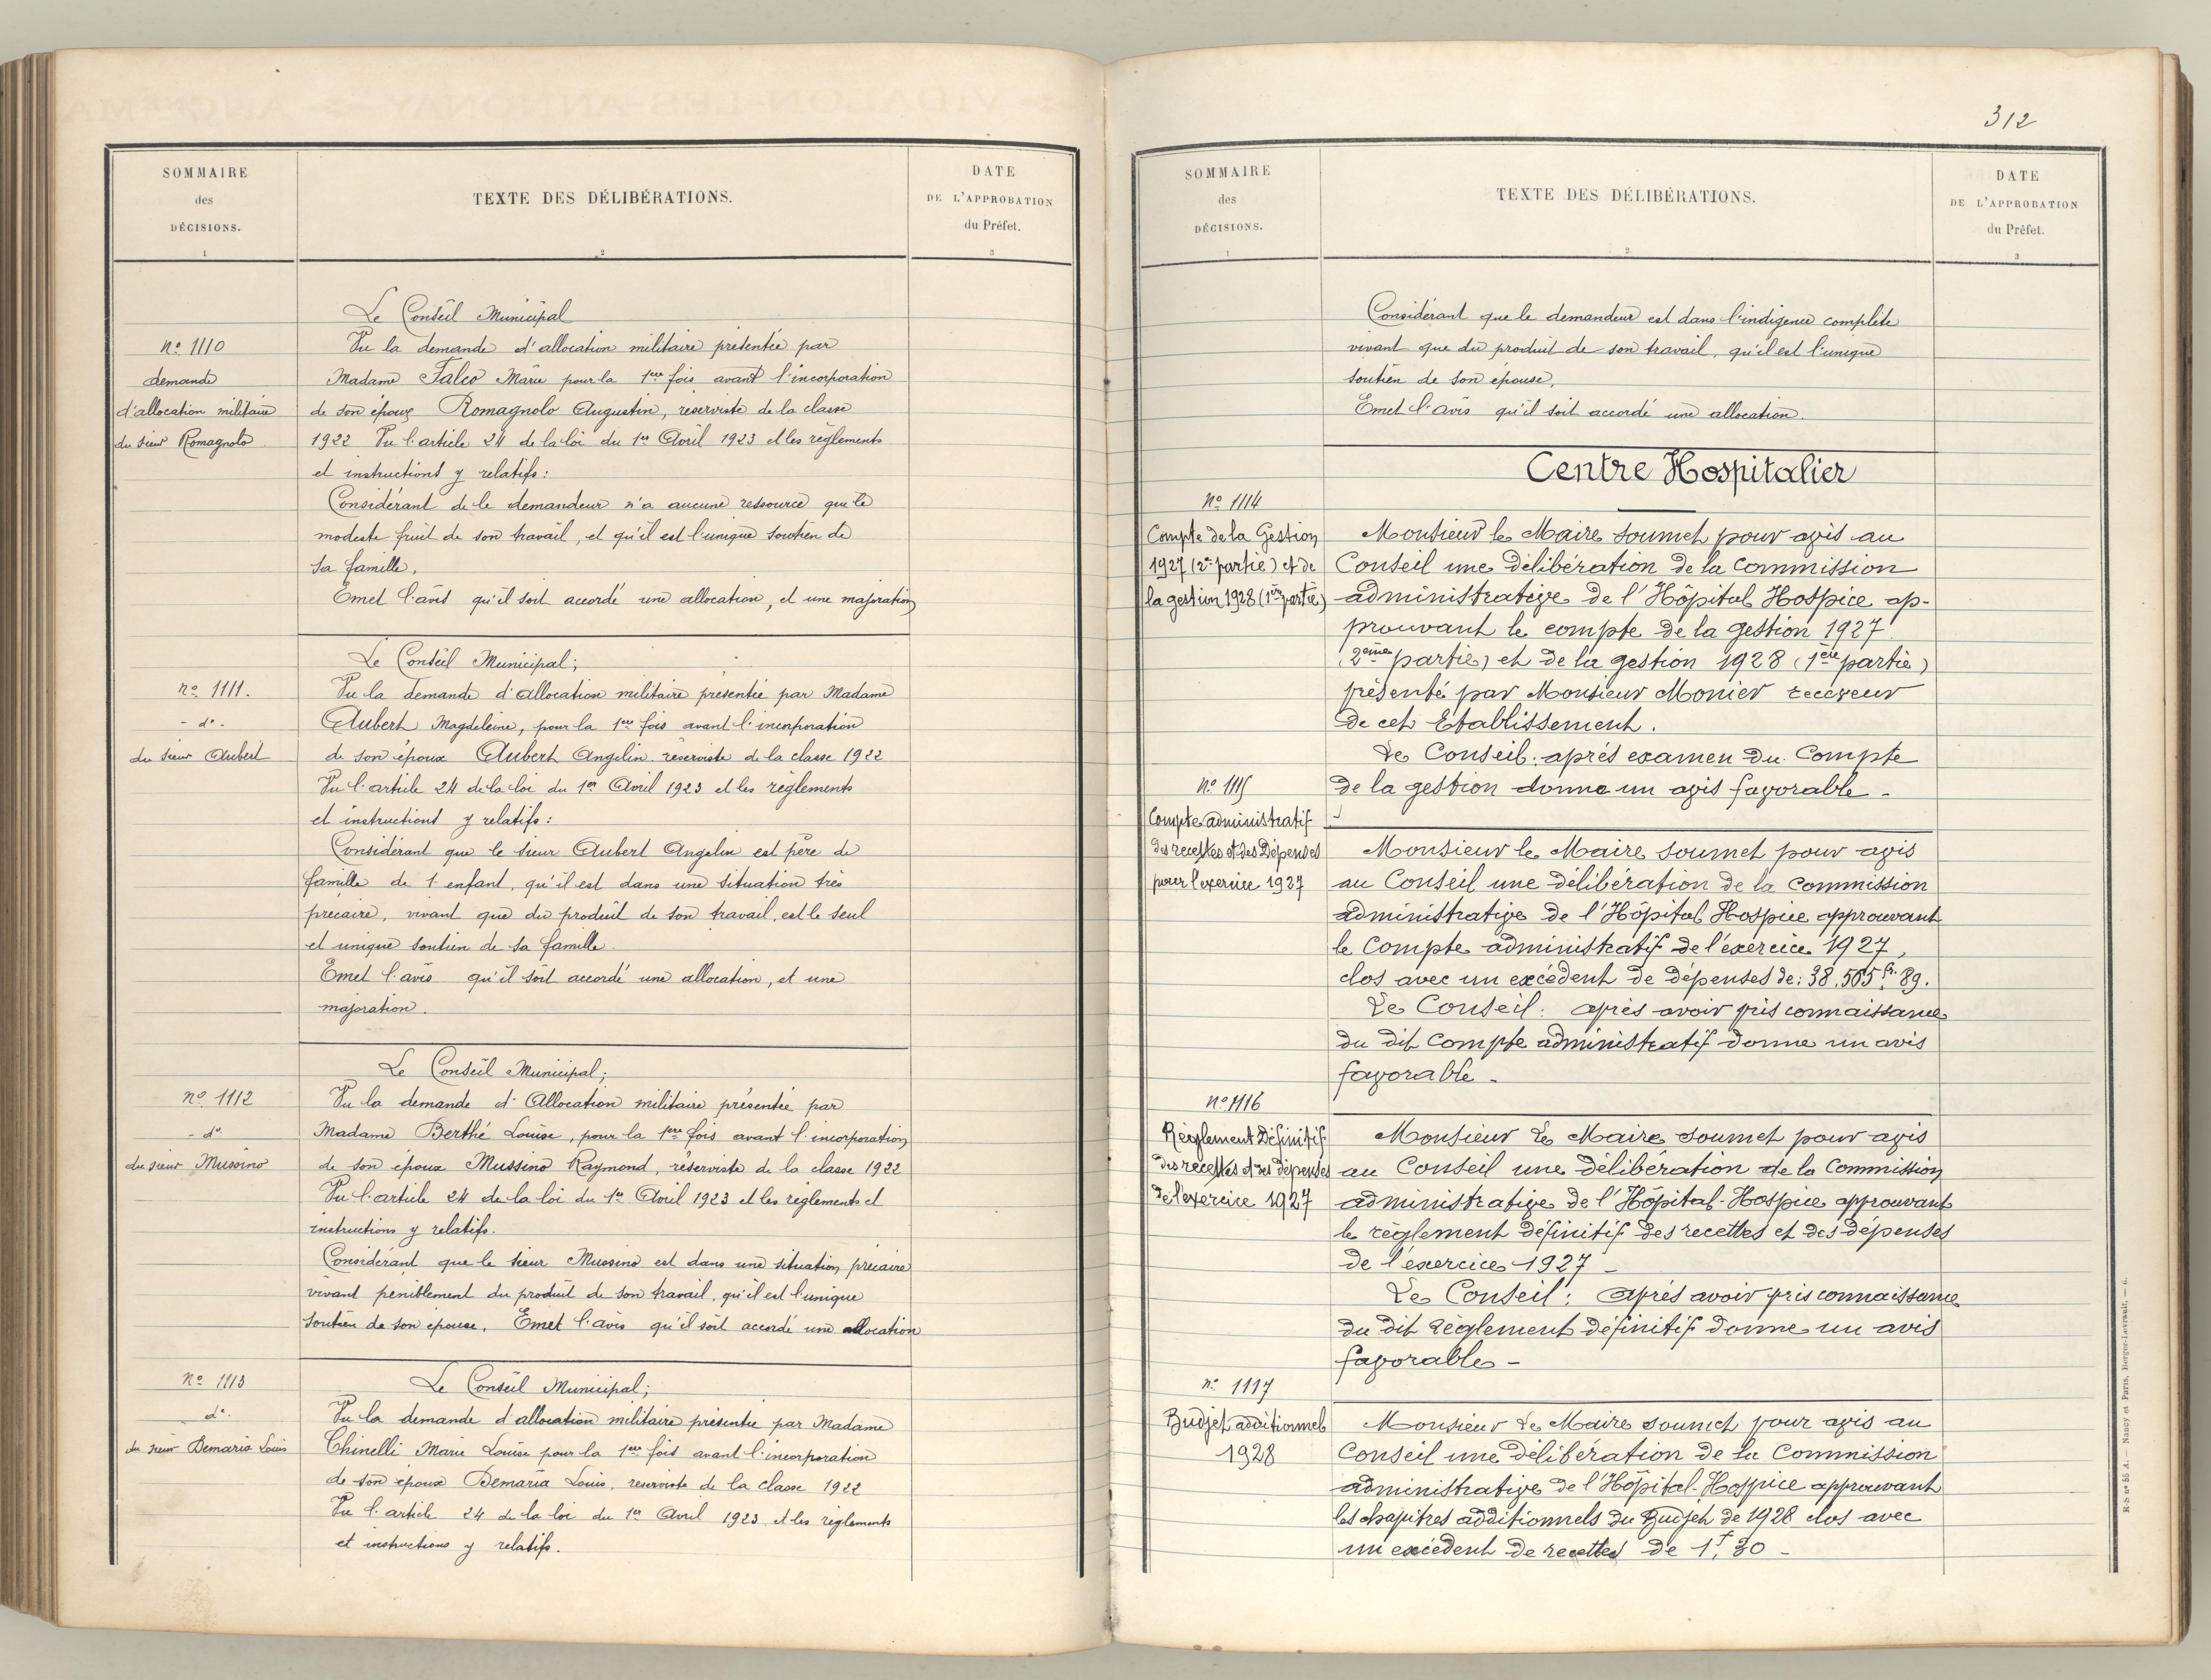 SOMMAIRE
des
DÉCISIONS.
1
TEXTE DES DÉLIBÉRATIONS.
2
DATE
DE L'APPROBATION
du Préfet.
3
Le Conseil Municipal
nº 1110
demande
d'allocation militaire
du sieur Romagnolo
Vu la demande d'allocation militaire présentée par
Madame Falco Marie pour la 1ère fois avant l'incorporation
de son époux Romagnolo Augustin, réserviste de la classe
1922 Vu l'article 24 de la loi du 1er Avril 1923 et les règlements
et instructions y relatifs:
Considérant de le demandeur n'a aucune ressource que le
modeste fruit de son travail, et qu'il est l'unique soutien de
sa famille.
Emet l'avis qu'il soit accordé une allocation, et une majoration
Le Conseil Municipal;
nº 1111.
- dº -
du sieur Aubert
Vu la demande d'allocation militaire présentée par Madame
Aubert Magdeleine, pour la 1ère fois avant l'incorporation
de son époux Aubert Angelin réserviste de la classe 1922
Vu l'article 24 de la loi du 1er Avril 1923 et les règlements
et instructions y relatifs:
Considérant que le sieur Aubert Angelin est père de
famille de 1 enfant, qu'il est dans une situation très
précaire, vivant que du produit de son travail, est le seul
et unique soutien de sa famille.
Emet l'avis qu'il soit accordé une allocation, et une
majoration.
Le Conseil Municipal;
nº 1112
- dº
du sieur Mussino
Vu la demande d'Allocation militaire présentée par
Madame Berthé Louise, pour la 1ère fois avant l'incorporation
de son époux Mussino Raymond, réserviste de la classe 1922
Vu l'article 24 de la loi du 1er Avril 1923 et les règlements et
instructions y relatifs.
Considérant que le sieur Mussino est dans une situation précaire
vivant péniblement du produit de son travail, qu'il est l'unique
soutien de son épouse. Emet l'avis qu'il soit accordé une allocation
Le Conseil Municipal;
nº 1113
dº.
du sieur Demaria Louis
Vu la demande d'allocation militaire présentée par Madame
Chinelli Marie Louise pour la 1ère fois avant l'incorporation
de son époux Demaria Louis, réserviste de la classe 1922
Vu l'article 24 de la loi du 1er Avril 1923 et les règlements
et instructions y relatifs.
312
SOMMAIRE
des
DÉCISIONS.
1
TEXTE DES DÉLIBÉRATIONS.
2
DATE
DE L'APPROBATION
du Préfet.
3
Considérant que le demandeur est dans l'indigence complète
vivant que du produit de son travail, qu'il est l'unique
soutien de son épouse,
Emet l'avis qu'il soit accordé une allocation.
Centre Hospitalier
nº 1114
Compte de la Gestion
1927 (2e partie) et de
la gestion 1928 (1ère partie)
Monsieur le Maire soumet pour avis au
Conseil une délibération de la Commission
administrative de l'Hôpital Hospice ap-
prouvant le compte de la gestion 1927
(2ème partie) et de la gestion 1928 (1ère partie)
présenté par Monsieur Monier receveur
de cet Etablissement.
Le Conseil: après examen du Compte
de la gestion donne un avis favorable -
nº 1115
Compte administratif
des recettes et des Dépenses
pour l'exercice 1927
Monsieur le Maire soumet pour avis
au Conseil une délibération de la Commission
administrative de l'Hôpital Hospice approuvant
le Compte administratif de l'exercice 1927,
clos avec un excédent de dépenses de: 38.505 fr. 89.
Le Conseil: après avoir pris connaissance
du dit Compte administratif donne un avis
favorable -
nº 1116
Règlement Définitif
des recettes et des dépenses
de l'exercice 1927
Monsieur Le Maire soumet pour avis
au Conseil une délibération de la Commission
administrative de l'Hôpital-Hospice approuvant
le règlement définitif des recettes et des dépenses
de l'exercice 1927 -
Le Conseil: après avoir pris connaissance
du dit règlement définitif donne un avis
favorable -
nº 1117
Budjet additionnel
1928
Monsieur Le Maire soumet pour avis au
Conseil une délibération de la Commission
administrative de l'Hôpital-Hospice approuvant
les chapitres additionnels du Budjet de 1928 clos avec
un excédent de recettes de 1f,30 -
R-S nº 55 A. — Nancy et Paris, Berger-Levrault. — 6.